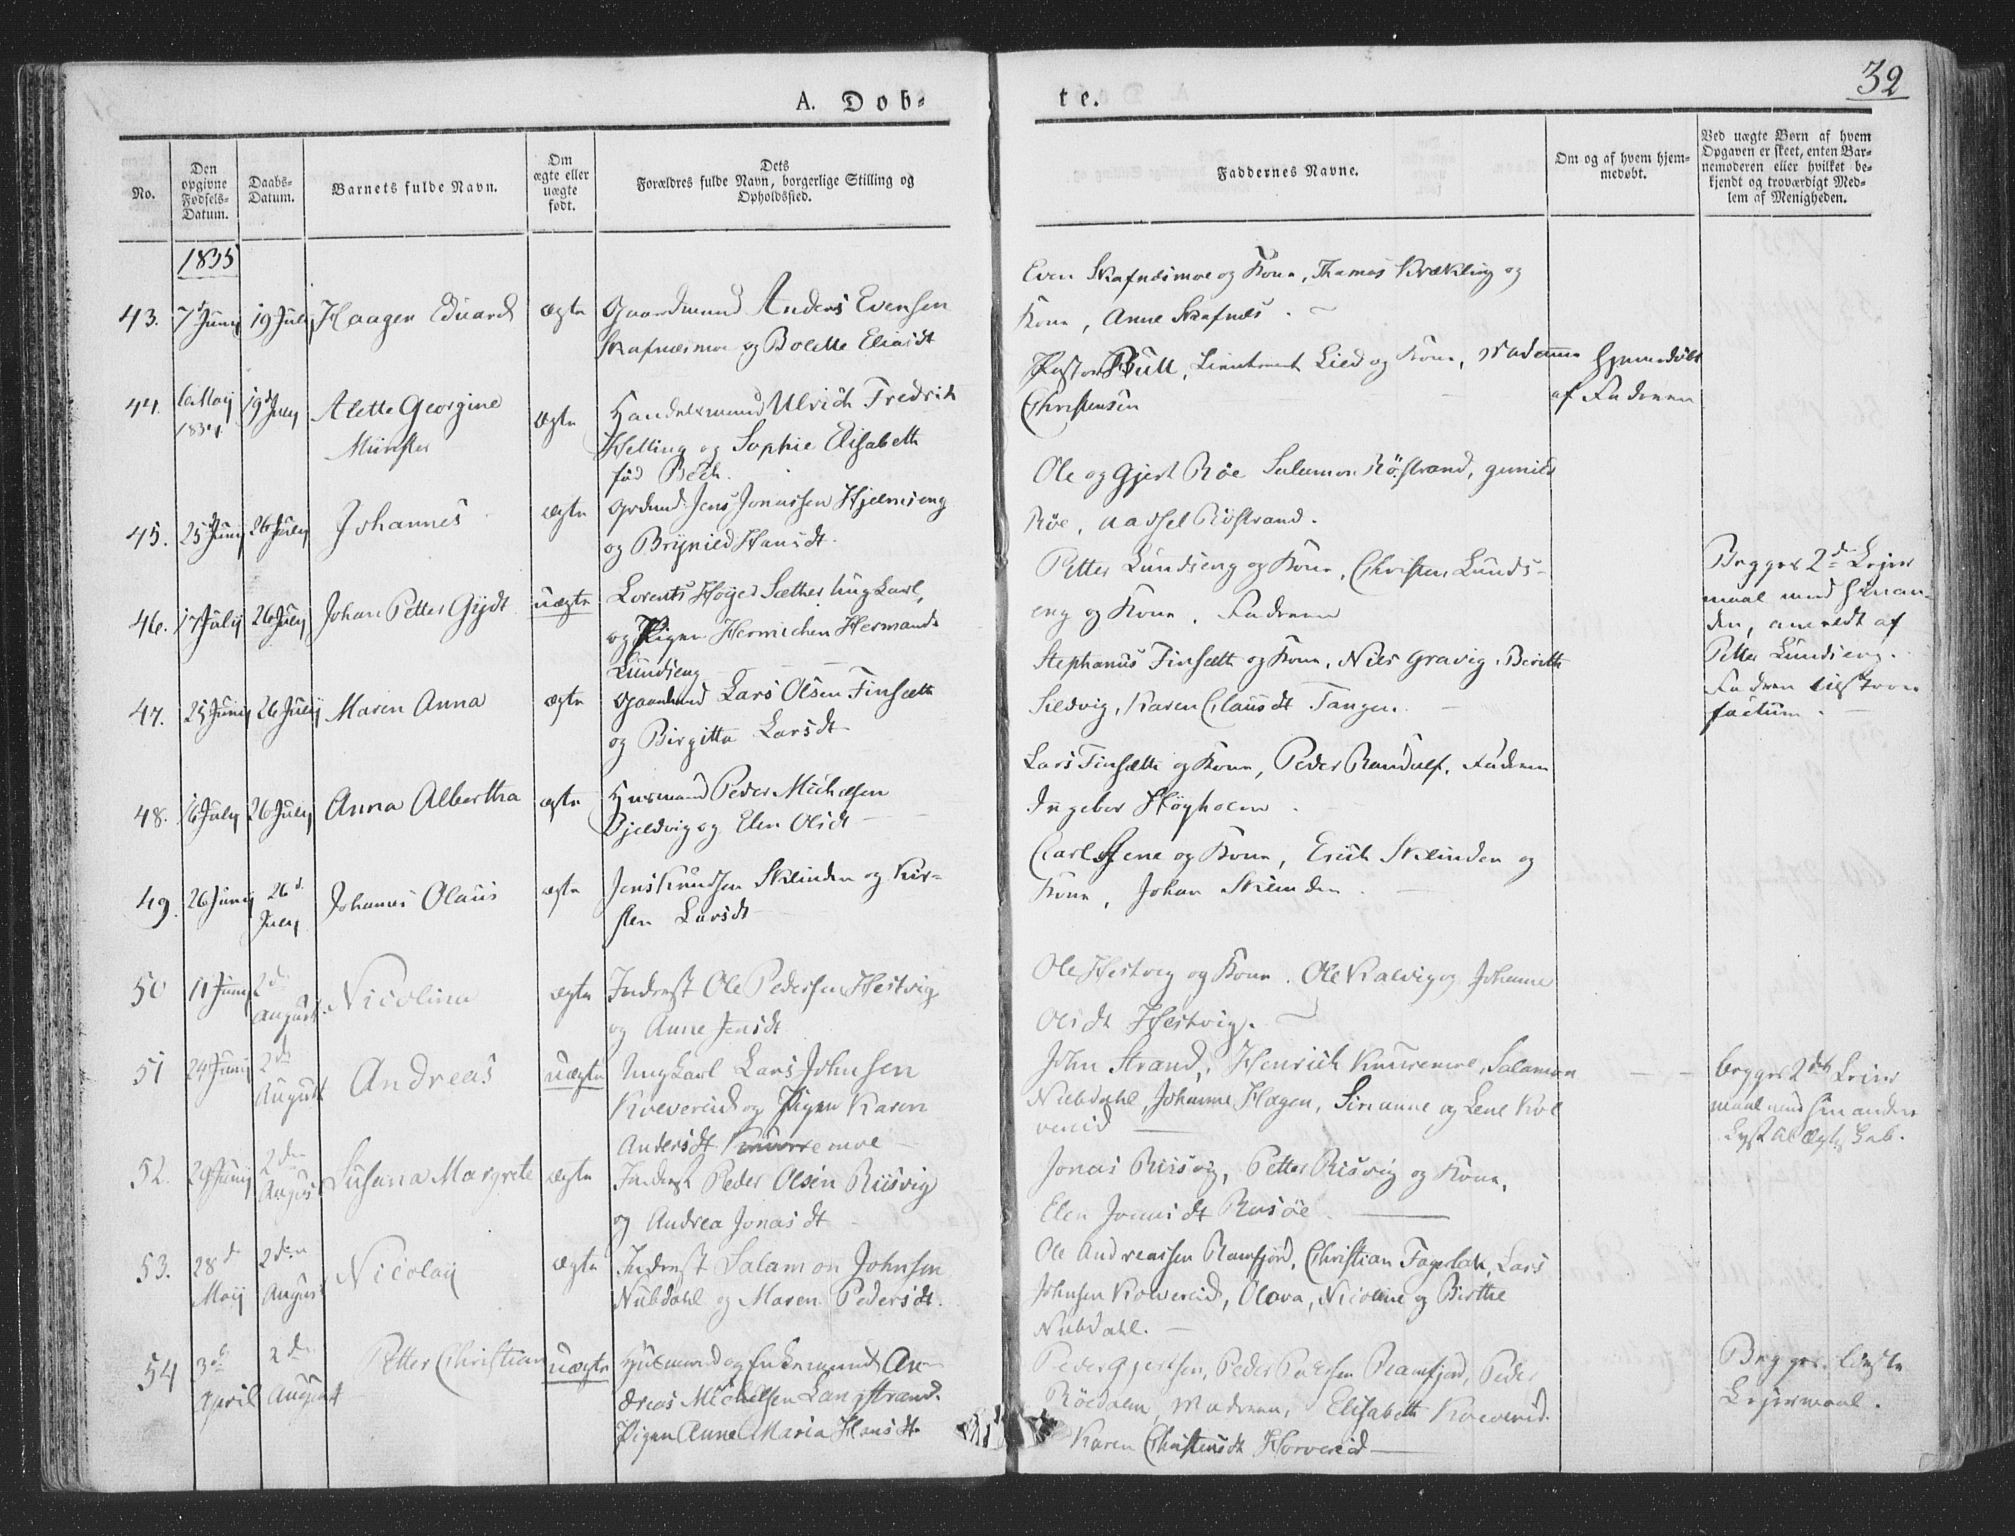 32
A. Døb-
te.
No.
Den opgivne Fødsels-Datum.
Daabs-Datum.
Barnets fulde Navn.
Om ægte eller uægte født.
Dets
Forældres fulde Navn, borgerlige Stilling og
Opholdssted.
Faddernes Navne.
Om og af hvem hjem-
medøbt.
Ved uægte Børn af hvem
Opgaven er skeet, enten Bar-
nemoderen eller hvilket be-
kjendt og troværdigt Med-
lem af Menigheden.
1835
43. 7de Junij 19 Julij Haagen Eduard ægte Gaardmand Anders Evensen
Skafnesmoe og Bolette Eliasdt
Even Skafnesmoe og Kone, Thomas Krækling og
Kone, Anne Skafnes.
44. 6 Maij 1834 19de Julij Alette Georgine
Münster
ægte Handelsmand Ulrich Fredrik
Helling og Sophie Elisabeth
fød Bech.
Pastor Bull, Lieutenant Lied og Kone, Madame
Christensen
Hjemmedøbt
af Faderen
45. 25 Junij 26 Julij Johannes ægte Grdmd. Jens Jonassen Hjelmseng
og Brynild Hansdt.
Ole og Gjert Røe Salamon Röstrand, Gunild
Røe, Aassel Röstrand.
46. 17 Julij 26 Julij Johan Petter Gydt uægte Lorents Höyer Sæther Ungkarl,
og Pigen Hernichen Hermands
Lundseng
Petter Lundseng og Kone, Christen Lunds-
eng og Kone. Faderen
Begges 2det Lejer
maal med hinan-
den, anmeldt af
Petter Lundseng.
Faderen tilstod
factum.
47. 25 Junij 26 Julij Maren Anna ægte Gaardmd Lars Olsen Finsæth
og Birgitta Larsdt
Stephanus Finsæth og Kone, Nils Gravig, Berith
Sildvig, Karen Clausdt Tangen.
48. 16 Julij 26 Julij Anna Albertha ægte Husmand Peder Michelsen
Bjeldvig og Elen Olsdt
Lars Finsæth og Kone, Peder Randulf, Faderen
Ingebor Høyholm.
49. 26 Junij 26d. Julij Johannes Olaus ægte Jens Knudsen Sklinden og Kir-
sten Larsdt
Carl Stene og Kone, Erich Sklinden og
Kone, Johan Sklinden.
50 11 Junij 2d August. Nicolina ægte Inderst Ole Pedersen Hestvig
og Anne Jensdt
Ole Hestvig og Kone. Ole Kalvig og Johanne
Olsdt Hestvig.
51 24 Junij 2den August Andreas uægte Ungkarl Lars Johnsen
Kolvereid og Pigen Karen
Andersdt Knurremoe
John Strand, Henrich Knurremoe, Salamon
Nubdahl, Johanne Hagen, Sirianne og Lene Kol
vereid
begges 2det Lejer
maal med hinanden
Lyst til Ægteskab.
52. 29 Junij 2den August Susana Margrete ægte Inderst Peder Olsen Riisvig
og Andrea Jonasdt
Jonas Riisvig, Petter Risvig og Kone,
Elen Jonasdt Risöe.
53. 28d Maij 2den August Nicolaij ægte Inderst Salamon Johnsen
Nubdahl og Maren Pedersdt.
Ole Andreassen Ramfjord, Christian Fagerbak, Lars
Johnsen Kolvereid, Olava, Nicoline og Birthe
Nubdahl.
54 3de April 2den August Petter Christian uægte Husmand og Enkemand An
dreas Michelsen Langstrand
Pigen Anne Maria Hansdt
Peder Gjertsen, Peder Pedersen Ramfjord, Peder
Röedalen, Moderen, Elisabeth Kolvereid.
Karen Christensdt Horvereid
Begges første
Lejermaal.